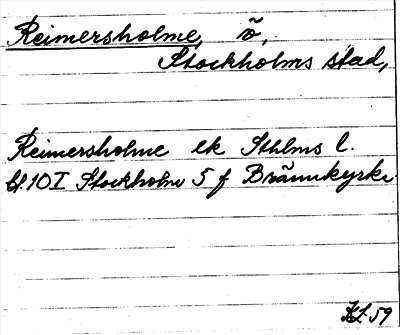 Reimersholme, ö,
Stockholms stad,
Reimersholme ek Sthlms l.
bl. 10 I Stockholm 5 f Brännkyrka
59